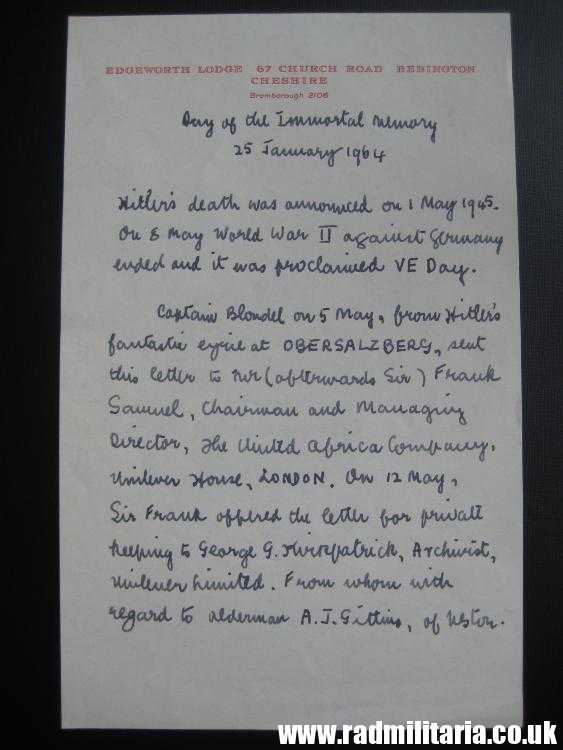 EDGEWORTH LODGE 67 CHURCH ROAD BEBINGTON
CHESHIRE
Bromborough 2106
Day of the Immortal Memory
25 January 1964
Hitler's death was announced on 1 May 1945.
On 8 May World War II against Germany
ended and it was proclaimed VE Day.
Captain Blondel on 5 May, from Hitler's
fantastic eyrie at OBERSALZBERG, sent
this letter to Mr (afterwards Sir) Frank
Samuel, Chairman and Managing
Director, The United Africa Company,
Unilever House, LONDON. On 12 May,
Sir Frank offered the letter for private
keeping to George G. Kirkpatrick, Archivist,
Unilever Limited. From whom with
regard to Alderman A.J. Gittins, of Neston.
www.radmilitaria.co.uk